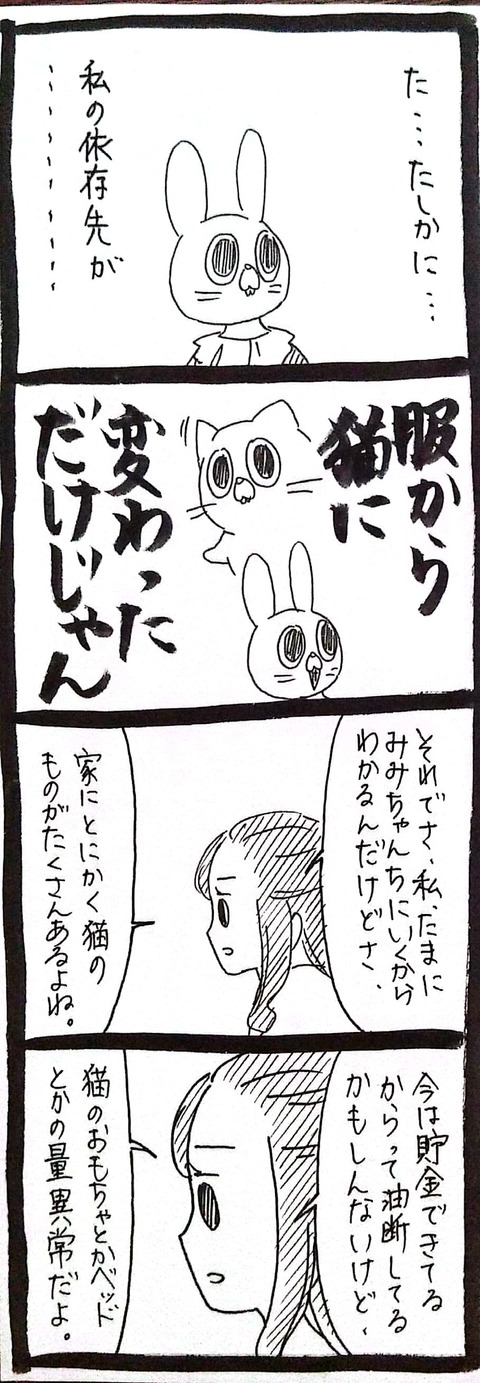 た…たしかに…
私の依存先が
………
服から
猫に
変わった
だけじゃん
それでさ、私、たまに
みみちゃんちにいくから
わかるんだけどさ、
家にとにかく猫の
ものがたくさんあるよね。
今は貯金できてる
からって油断してる
かもしんないけど、
猫のおもちゃとかベッド
とかの量異常だよ。